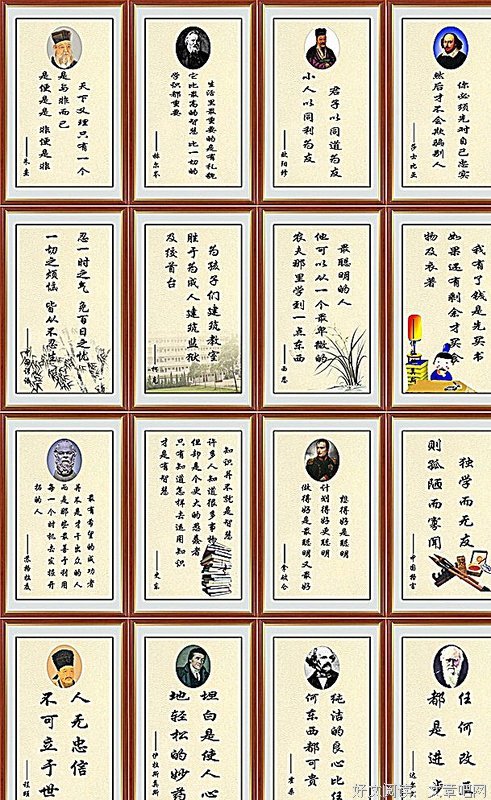 天下义理只有一个
是与非而已
是便是是 非便是非
——朱熹
生活里最重要的是有礼貌
它比最高的智慧 比一切的
学识都重要
——赫尔岑
君子以同道为友
小人以同利为友
——欧阳修
你必须先对自己忠实
然后才不会欺骗别人
——莎士比亚
忍一时之气 免百日之忧
一切之烦恼 皆从不忍生
为孩子们建筑教室
胜于为成人建筑监狱
及绞首台
最聪明的人
他可以从一个最卑微的
农夫那里学到一点东西
我有了钱是先买书
如果还有剩余才买食
物及衣着
最有希望的成功者
并不是才干出众的人
而是那些最善于利用
每一个时机去发掘开
拓的人
——苏格拉底
知识并不就是智慧
许多人知道很多事物
但却是个更大的愚蠢者
只有知道怎样去运用知识
才是有智慧
——史家
想得好是聪明
计划得好更聪明
做得好是最聪明又最好
——拿破仑
独学而无友
则孤陋而寡闻
——中国格言
人无忠信
不可立于世
——程颐
坦白是使人心
地轻松的妙药
——伊拉斯莫斯
纯洁的良心比任
何东西都可贵
任何改正
都是进步
好文阅读 文章吧网